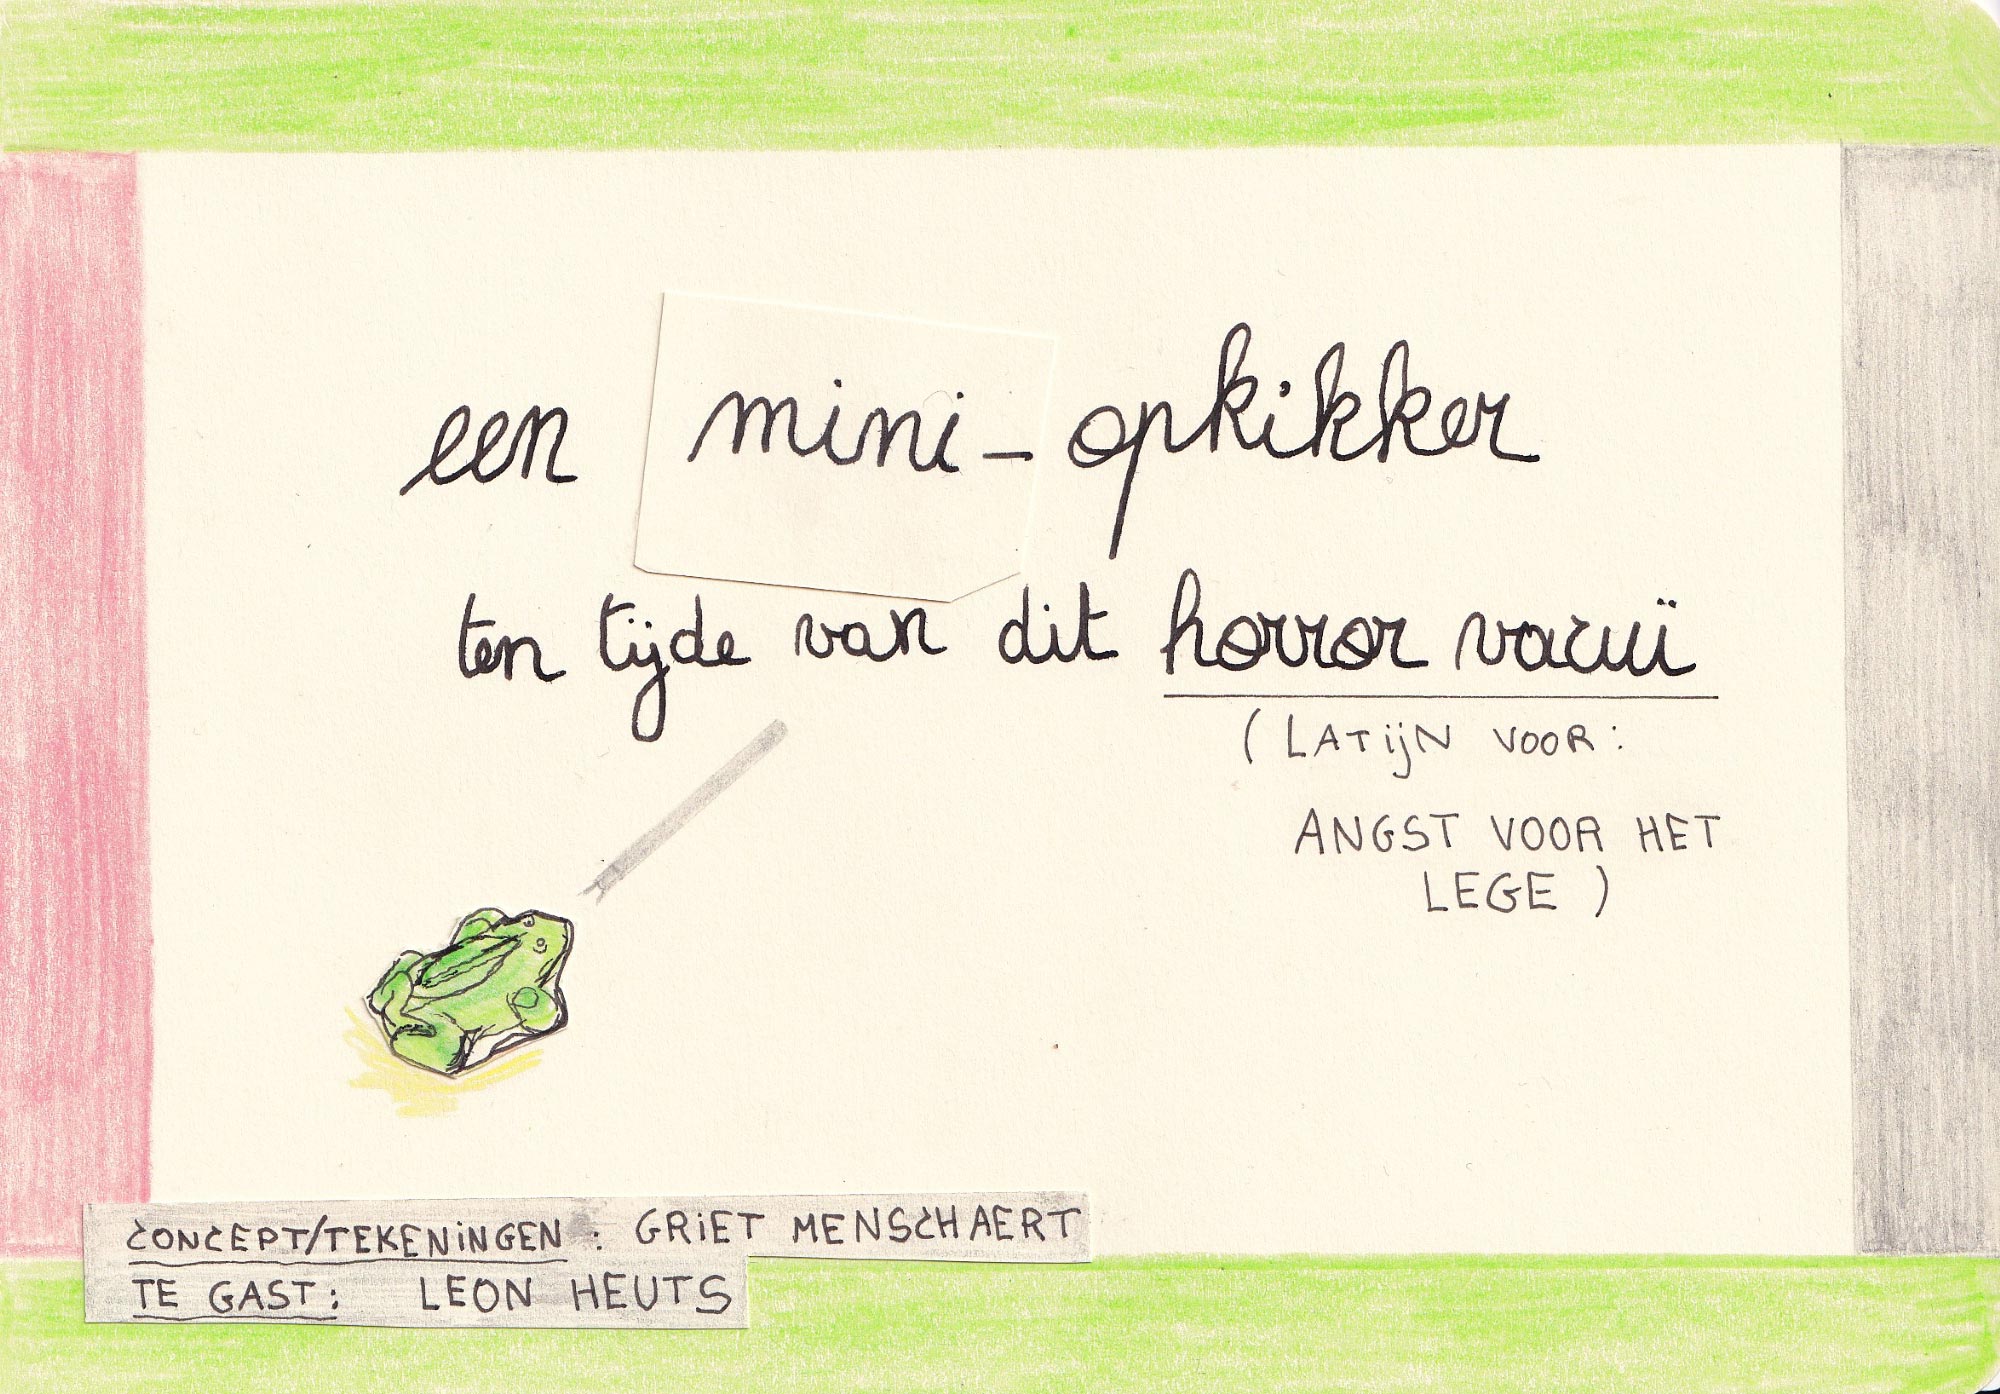 een mini-opkikker
ten tijde van dit horror vacuï
(LATijN VOOR:
ANGST VOOR HET
LEGE)
CONCEPT/TEKENiNGEN: GRiET MENSCHAERT
TE GAST: LEON HEUTS